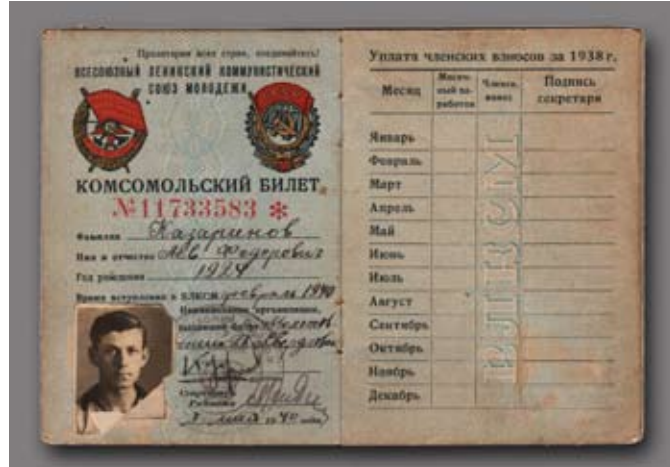 Пролетарии всех стран, соединяйтесь!
ВСЕСОЮЗНЫЙ ЛЕНИНСКИЙ КОММУНИСТИЧЕСКИЙ
СОЮЗ МОЛОДЕЖИ
КОМСОМОЛЬСКИЙ БИЛЕТ
№11733583 *
Фамилия Казаринов
Имя и отчество Федорович
Год рождения 1924
Время вступления в ВЛКСМ февраль 1940
Наименование организации,
выдавшей билет
Секретарь
Райкома
мая 1940
Уплата членских взносов за 1938 г.
Месяц Месяч- ный за- работок Членск. взнос Подпись секретаря
Январь
Февраль
Март
Апрель
Май
Июнь
Июль
Август
Сентябрь
Октябрь
Ноябрь
Декабрь
ВЛКСМ